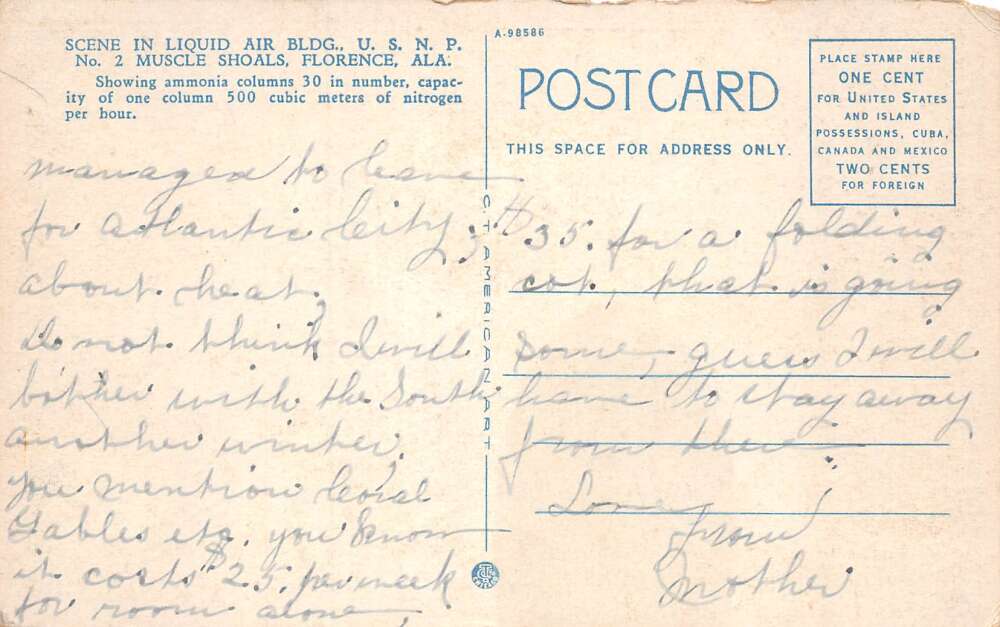 SCENE IN LIQUID AIR BLDG., U. S. N. P.
No. 2 MUSCLE SHOALS, FLORENCE, ALA.
Showing ammonia columns 30 in number, capac-
ity of one column 500 cubic meters of nitrogen
per hour.
managed to leave
for Atlantic City,
about heat,
do not think I will
bother with the South
another winter,
you mention Coral
Gables etc. you know
it costs $25. per week
for room alone,
C. T. AMERICAN ART
A-98586
POST CARD
THIS SPACE FOR ADDRESS ONLY.
PLACE STAMP HERE
ONE CENT
FOR UNITED STATES
AND ISLAND
POSSESSIONS, CUBA,
CANADA AND MEXICO
TWO CENTS
FOR FOREIGN
$35. for a folding
cot, that is going
some, guess I will
have to stay away
from there.
Love
from
Mother